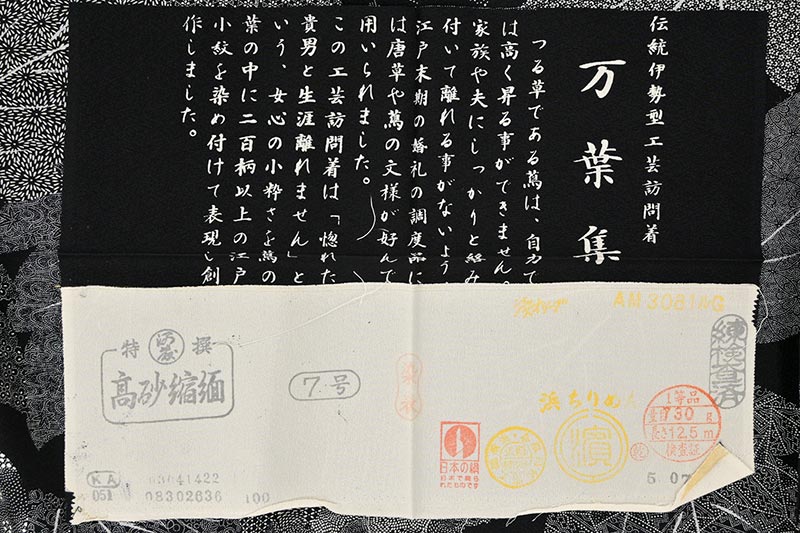 伝統伊勢型工芸訪問着
万葉集
つる草である蔦は、自力で
は高く昇る事ができません。
家族や夫にしっかりと絡み
付いて離れる事がないよう、
江戸末期の婚礼の調度品に
は唐草や蔦の文様が好んで
用いられました。
この工芸訪問着は「惚れた
貴男と生涯離れません」と
いう、女心の小粋さを蔦の
葉の中に二百柄以上の江戸
小紋を染め付けて表現し創
作しました。
AM3081NG
練検査済
特 撰
高砂縮緬
7号
浜ちりめん
濱
1等品
量目730g
長さ12.5m
検査証
日本の絹
日本で織ら
れたものです
5.07
KA
051
03041422
08302636
100